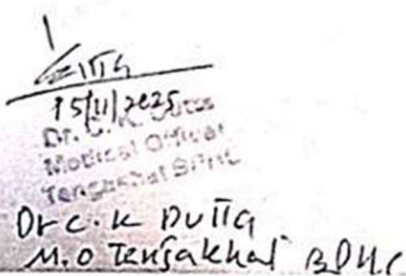 15/11/2025
Dr. C. K. Dutta
Medical Officer
Tengakhat BPHC
Dr C. K DUTTA
M.O Tengakhat BPHC